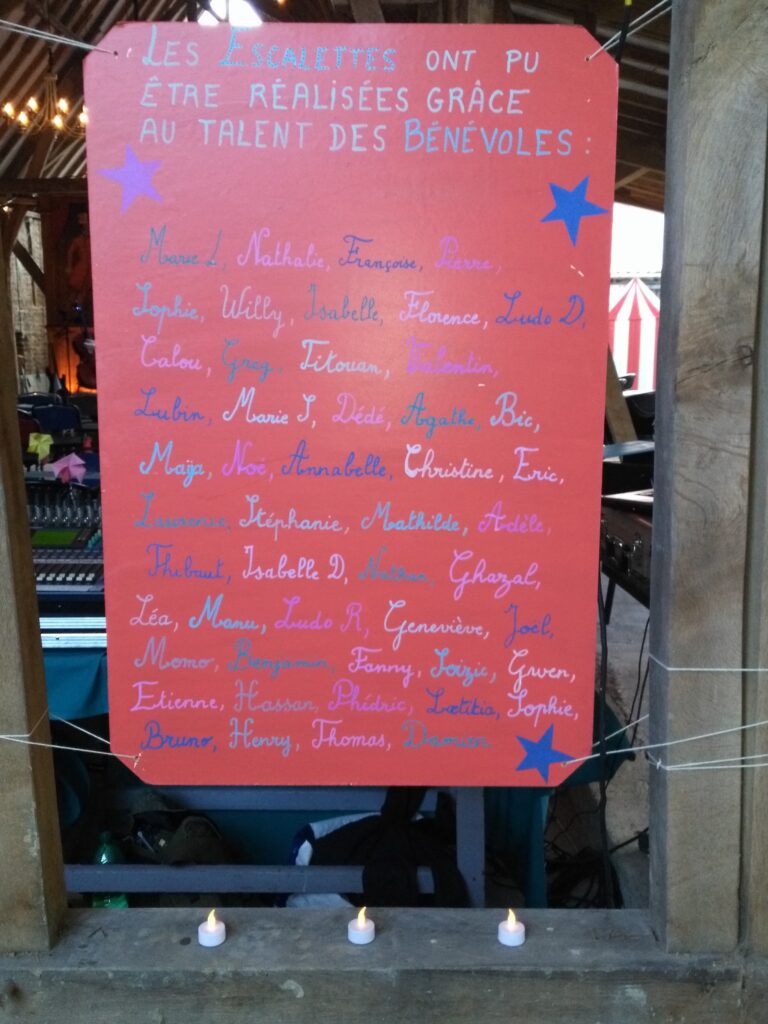 LES ESCALETTES ONT PU
ÊTRE RÉALISÉES GRÂCE
AU TALENT DES BÉNÉVOLES :
Marie L, Nathalie, Françoise, Pierre,
Sophie, Willy, Isabelle, Florence, Ludo D,
Calou, Greg, Titouan, Valentin,
Lubin, Marie J, Dédé, Agathe, Bic,
Maïja, Noé, Annabelle, Christine, Eric,
Laurence, Stéphanie, Mathilde, Adèle,
Thibaut, Isabelle D, Nathan, Ghazal,
Léa, Manu, Ludo R, Geneviève, Joël,
Momo, Benjamin, Fanny, Soizic, Gwen,
Etienne, Hassan, Phédric, Lætitia, Sophie,
Bruno, Henry, Thomas, Damien